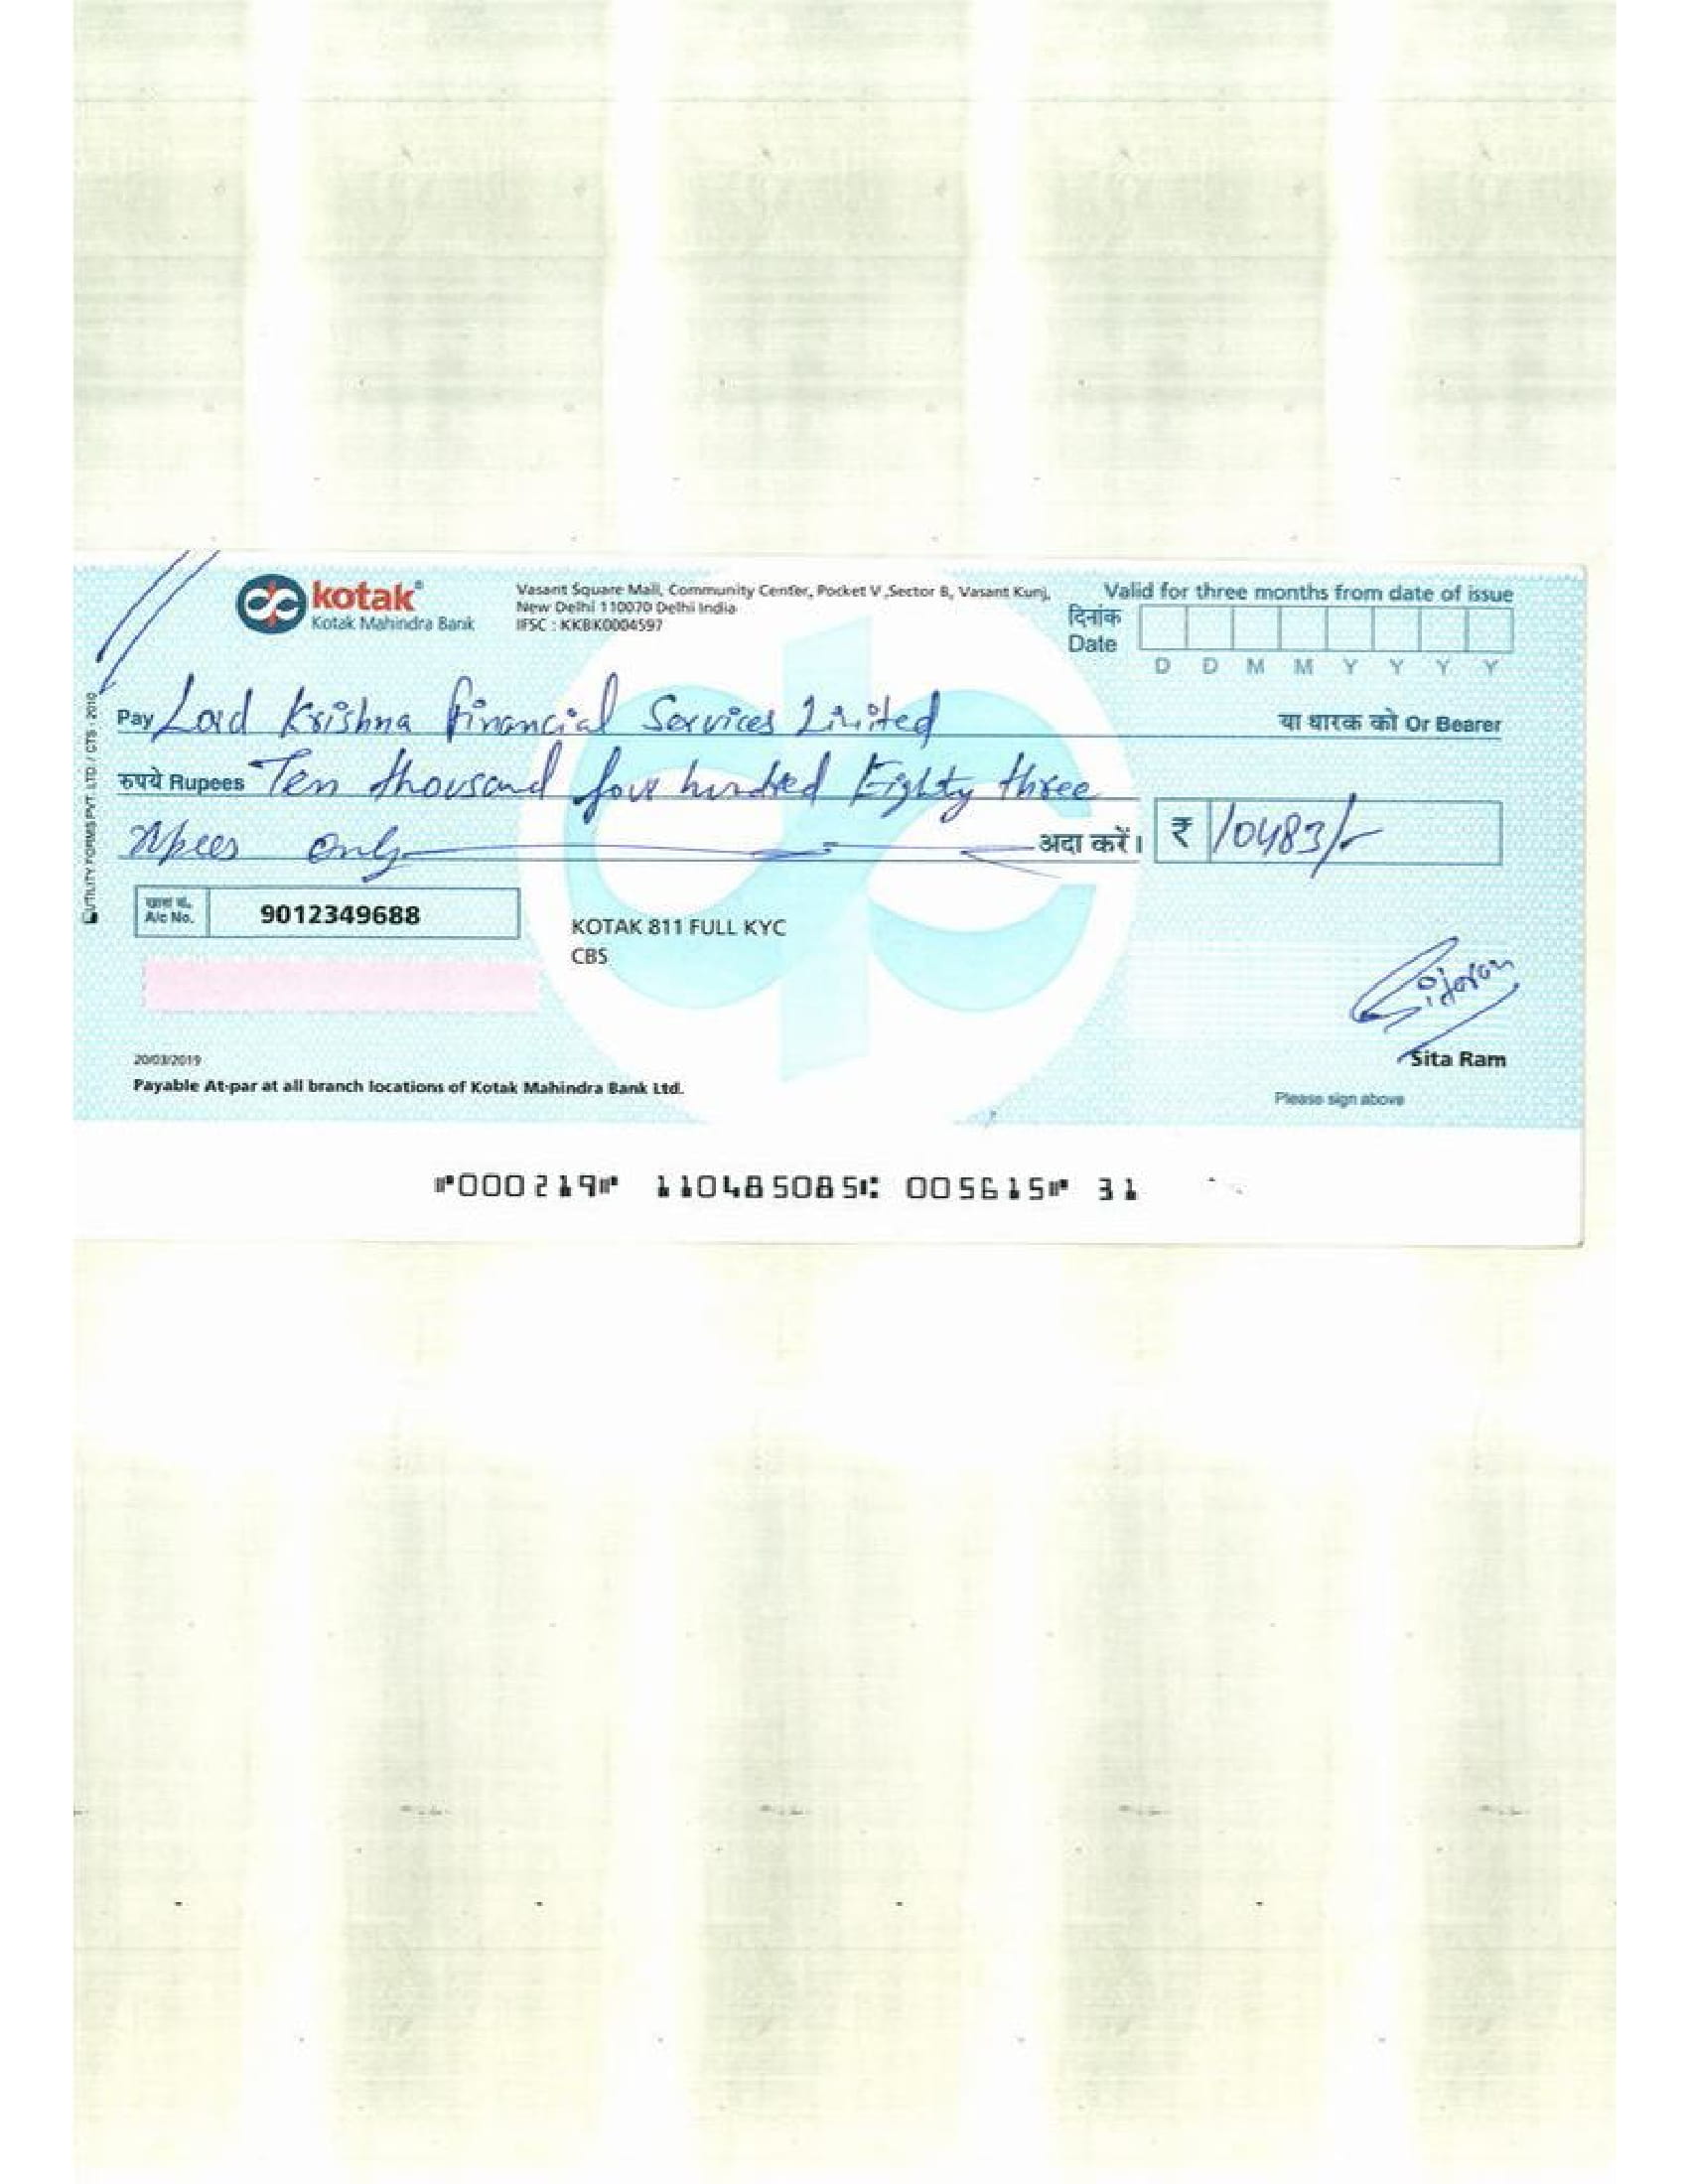 kotak®
Kotak Mahindra Bank
Vasant Square Mall, Community Center, Pocket V ,Sector B, Vasant Kunj,
New Delhi 110070 Delhi India
IFSC : KKBK0004597
Valid for three months from date of issue
दिनांक
Date
D D M M Y Y Y Y
Pay Lord Krishna Financial Services Limited
या धारक को Or Bearer
रुपये Rupees Ten thousand four hundred Eighty three
rupees only
अदा करें।
₹ 10483/-
खाता सं.
A/c No.
9012349688
KOTAK 811 FULL KYC
CBS
Sitaram
Sita Ram
20/03/2019
Payable At-par at all branch locations of Kotak Mahindra Bank Ltd.
Please sign above
UTILITY FORMS PVT. LTD / CTS - 2010
⑈000219⑈ 110485085⑆ 005615⑈ 31